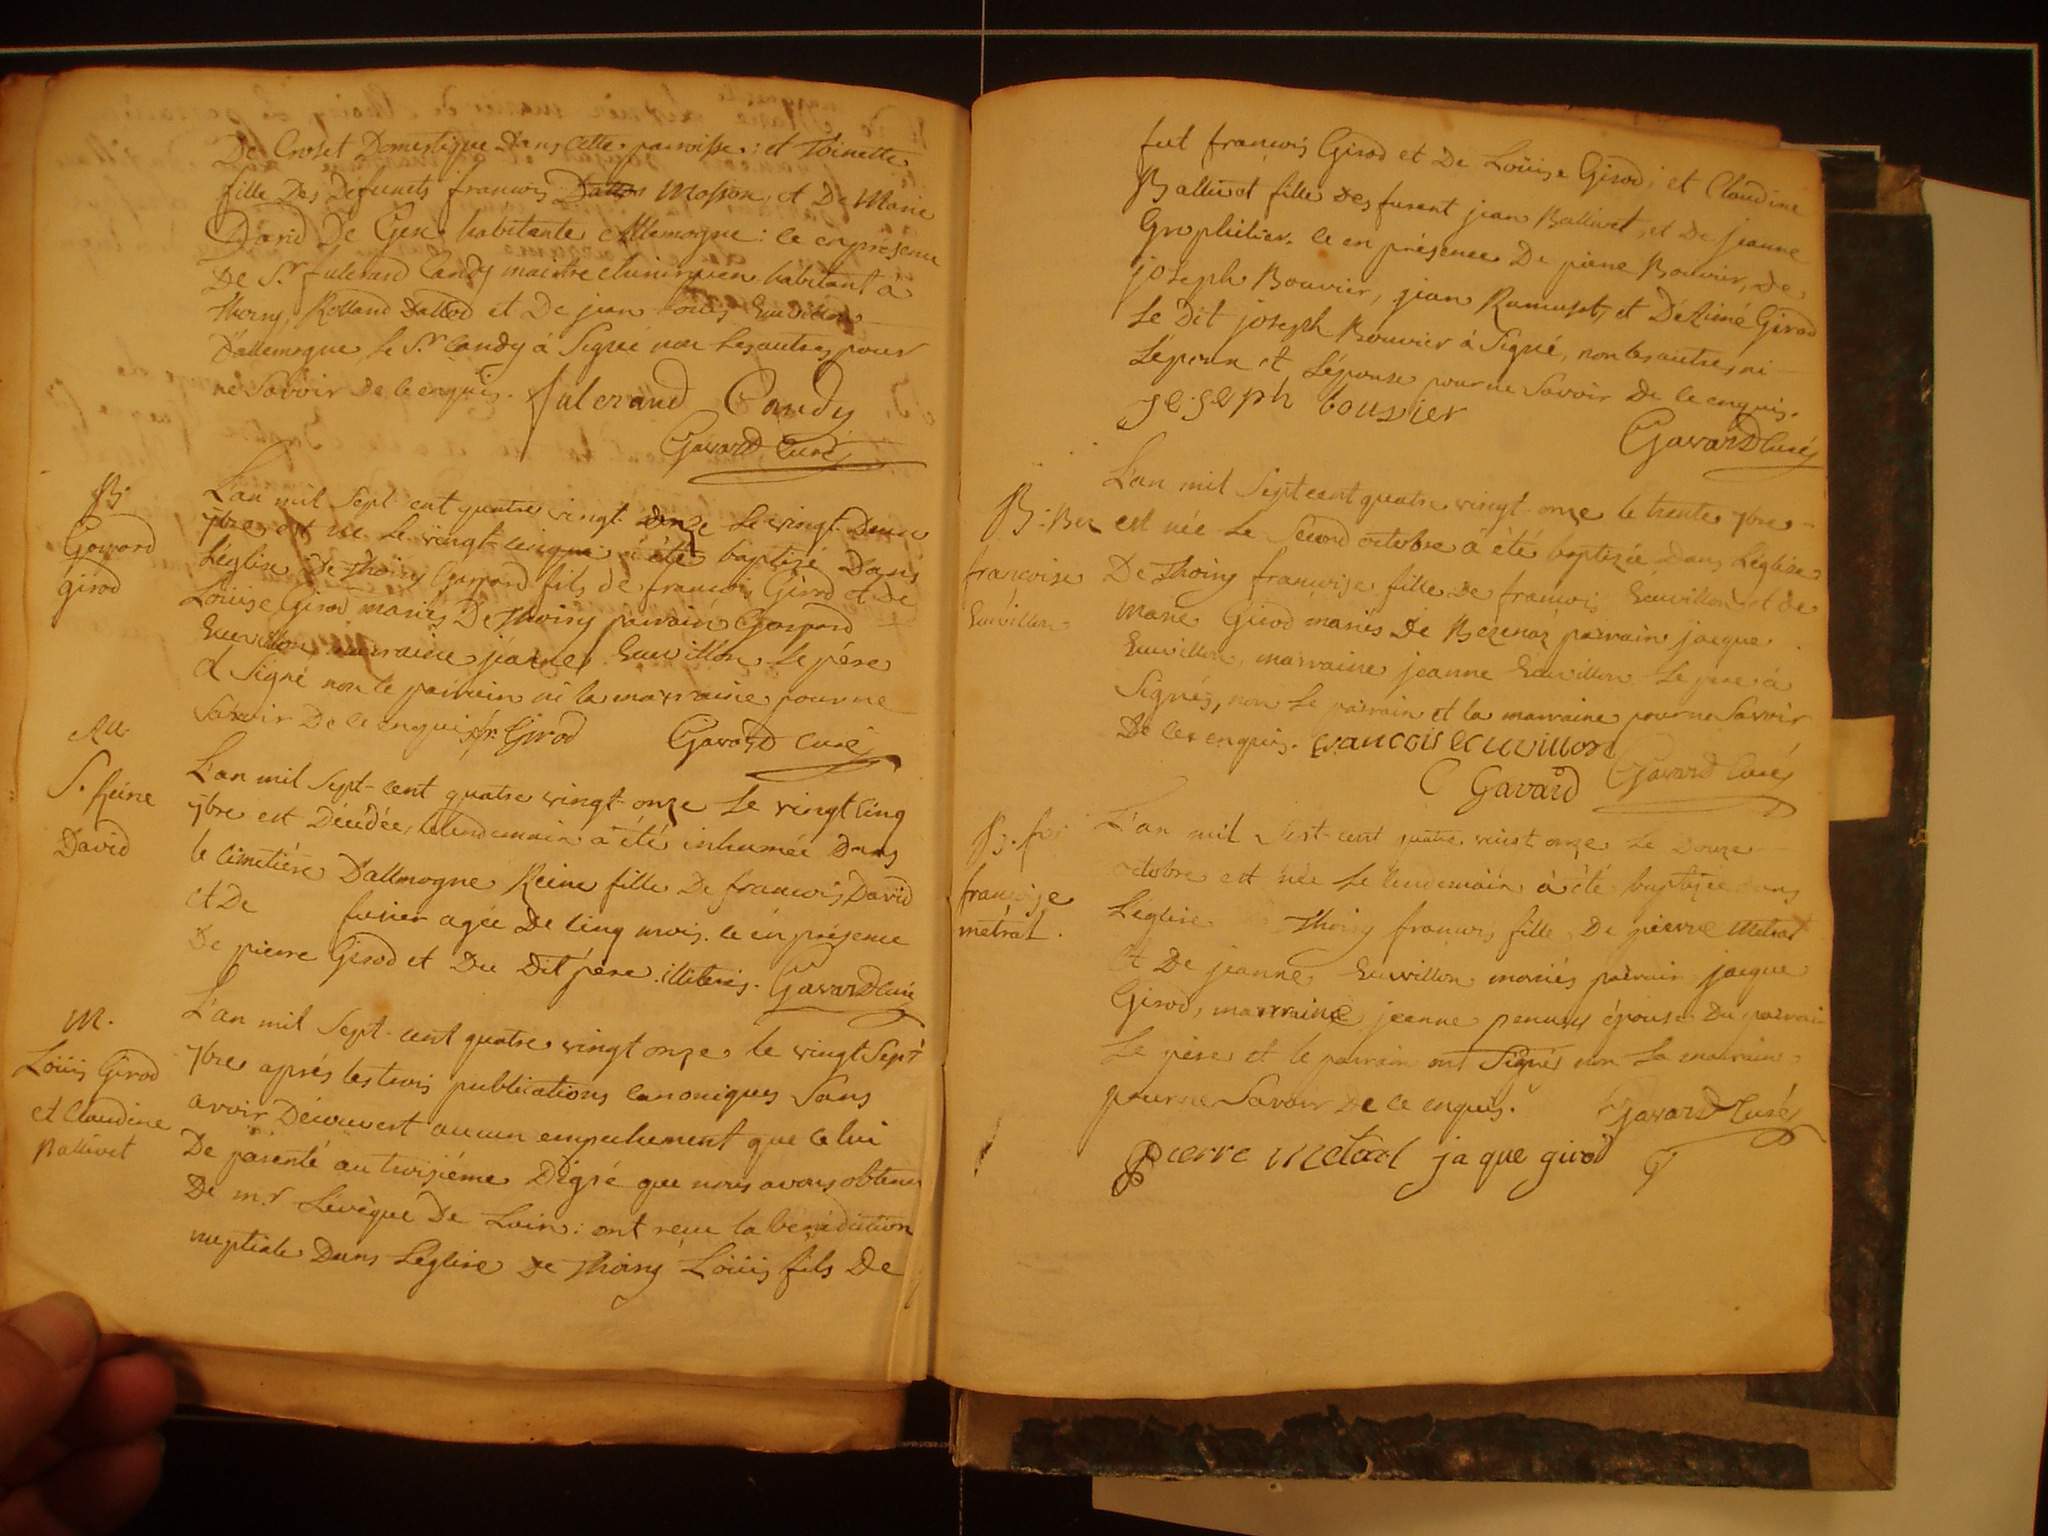 De Croset Domestique dans cette paroisse : et Toinette
fille Des Defunts francois Dallos Mosson, et De Marie
David De Gex habitante Allemogne : ce en présence
De Sr fulcrand Candy maitre chirurgien habitant a
Thoiry, Rolland Dallod et De jean louis Emvillon
D'allemogne le Sr Candy á Signé non les autres pour
ne Savoir De ce enquis. fulcrand Candy
Gavard Curé
B.
Gaspard
girod
L'an mil Sept cent quatre vingt onze le vingt Deux
7bre est né le vingt-cinque á été baptizé Dans
L'église de thoiry Gaspard fils de francois Girod et de
Louise Girod mariés De Thoiry pairain Gaspard
Emvillon marraine jeanne Emvillon le pére
á Signé non le pairain ni la marraine pour ne
Savoir De ce enquis fr. Girod Gavard curé
S. Reine
David
L'an mil Sept-cent quatre vingt-onze le vingt cinq
7bre est Décédée, le lendemain a été inhumée Dans
le cimetiére D'allmogne Reine fille De francois David
et De fusier agée De cinq mois. ce én présence
De pierre Girod et Du Dit pére. illiteris. Gavard curé
M.
Loüis Girod
et Claudine
Ballivet
L'an mil Sept-cent quatre vingt onze le vingt Sept
7bre aprés les trois publications canoniques Sans
avoir Découvert aucun empechement que celui
De parenté au troisiéme Dégré que nous avons obtenu
De mr L'évêque De Lain : ont recu la bénédiction
nuptiale Dans L'église De Thoiry Loüis fils De
fut francois Girod et De Loüise Girod ; et Claudine
Ballivet fille Des furent jean Ballivet, et De jeanne
Grophilier. ce en présence De pierre Bouvier, De
joseph Bouvier, jean Ramuset, et D'Aimé Girod
Le Dit joseph Bouvier á Signé, non les autres, ni
L'époux et L'épouse pour ne Savoir De ce enquis.
joseph bouvier
Gavard Curé
B: Bez
francoise
Emvillon
L'an mil Sept cent quatre vingt-onze le trente 7bre
est née le Second octobre á été baptizée Dans L'église
De Thoiry francoise fille De francois Emvillon et de
Marie Girod mariés De Bezenaz pairain jacque
Emvillon, marraine jeanne Emvillon le pere á
Signés, non le pairain et la marraine pour ne Savoir
De ces enquis. francois Emvillon
C Gavard Gavard Curé
francoise
métrat.
L'an mil Sept-cent quatre vingt onze le Douze
octobre est née le lendemain á été baptizée dans
L'église Thoiry francois fille De pierre Metrat
et De jeanne Emvillon mariés pairain jacque
Girod, marraine jeanne épouse Du pairain
Le pére et le pairain ont Signés non la marraine
pour ne Savoir De ce enquis. Gavard Curé
pierre metral ja que girod